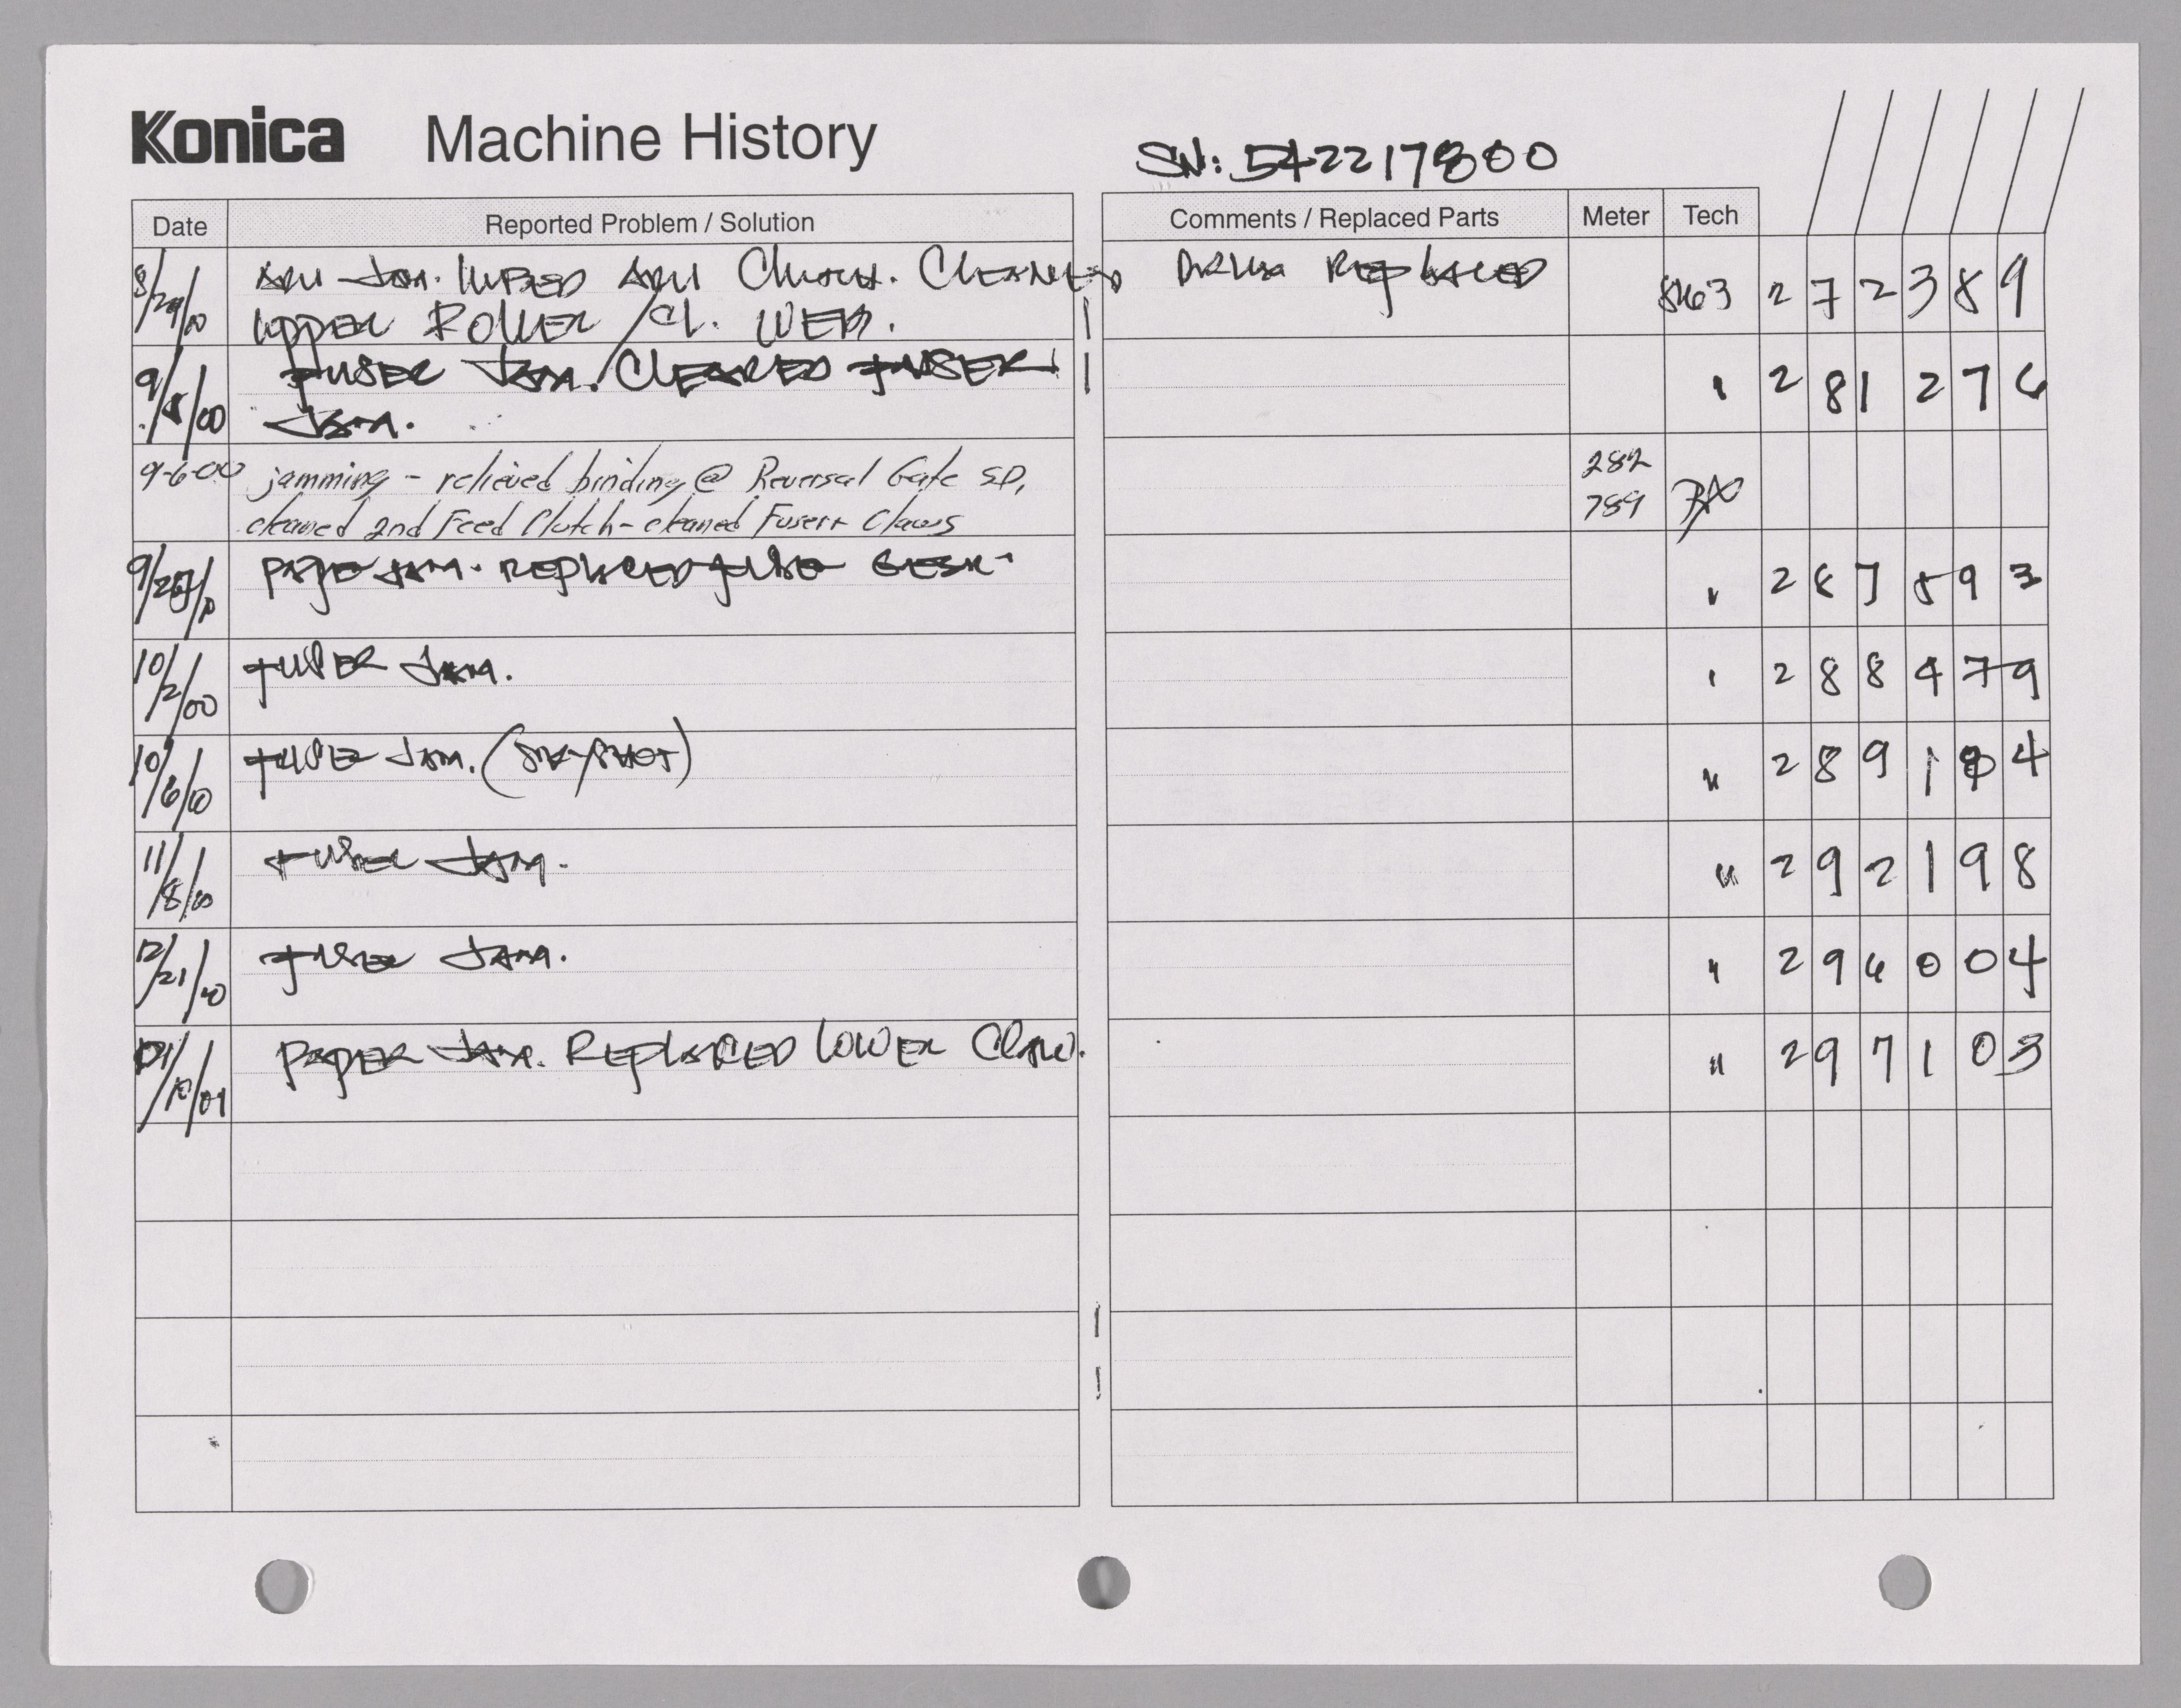 Konica Machine History
SN: 542217800
Date Reported Problem / Solution Comments / Replaced Parts Meter Tech
8/29/00 ADU JAM. LUBED ADU Clutch. CLEANED DRUM REPLACED 8463 2 7 2 3 8 9
UPPER ROLLER / CL. WEB.
9/5/00 FUSER JAM. CLEARED FUSER " 2 8 1 2 7 6
JAM.
9-6-00 jamming - relieved binding @ Reversal Gate SD, 282
cleaned 2nd Feed Clutch - cleaned Fuser + Claws 789
PAPER JAM. REPLACED " 2 8 7 5 9 3
10/2/00 FUSER JAM. " 2 8 8 4 7 9
10/6/00 FUSER JAM. " 2 8 9 1 4
11/8/00 FUSER JAM. " 2 9 2 1 9 8
12/21/00 FUSER JAM. " 2 9 6 0 0 4
PAPER JAM. REPLACED LOWER CLAW. " 2 9 7 1 0 3